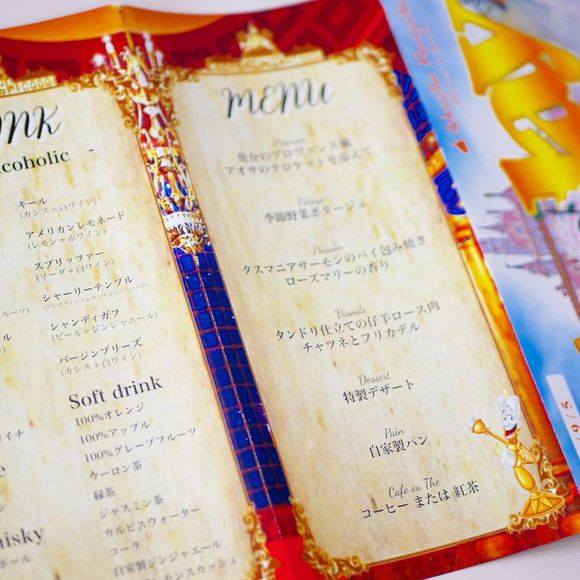 MENU
魚介のプロヴァンス風
アオサのクロケットを添えて
Potage
季節野菜ポタージュ
Poisson
タスマニアサーモンのパイ包み焼き
ローズマリーの香り
Viande
タンドリ仕立ての仔羊ロース肉
チャツネとフリカデル
Dessert
特製デザート
Pain
自家製パン
Cafe ou The
コーヒー または 紅茶
キール
(カシス+白ワイン)
アメリカンレモネード
(レモン+赤ワイン)
スプリッツァー
(ソーダ+白ワイン)
シャーリーテンプル
シャンディガフ
(ビール+ジンジャエール)
バージンブリーズ
(カシス+白ワイン)
Soft drink
100%オレンジ
100%アップル
100%グレープフルーツ
ウーロン茶
緑茶
ジャスミン茶
カルピスウォーター
コーラ
自家製ジンジャエール